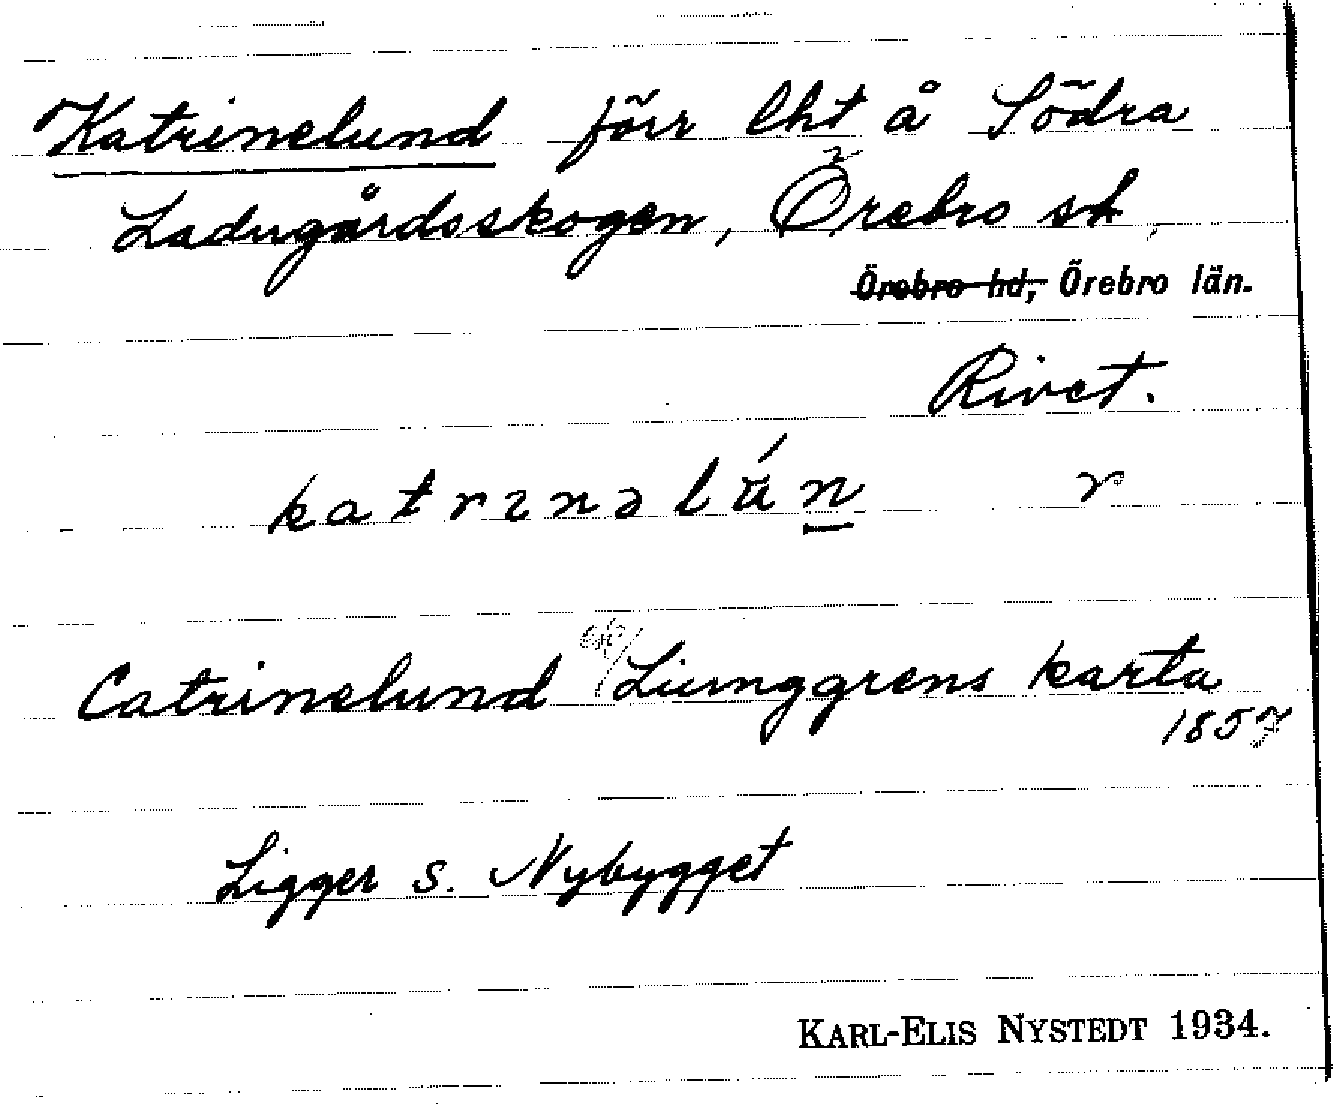 Katrinelund förr lht å Södra
Ladugårdsskogen, Örebro sk
Örebro hd, Örebro län.
Rivet.
katrɩnəlún r
Catrinelund Ljunggrens karta
1857
Ligger s. Nybygget
KARL-ELIS NYSTEDT 1934.